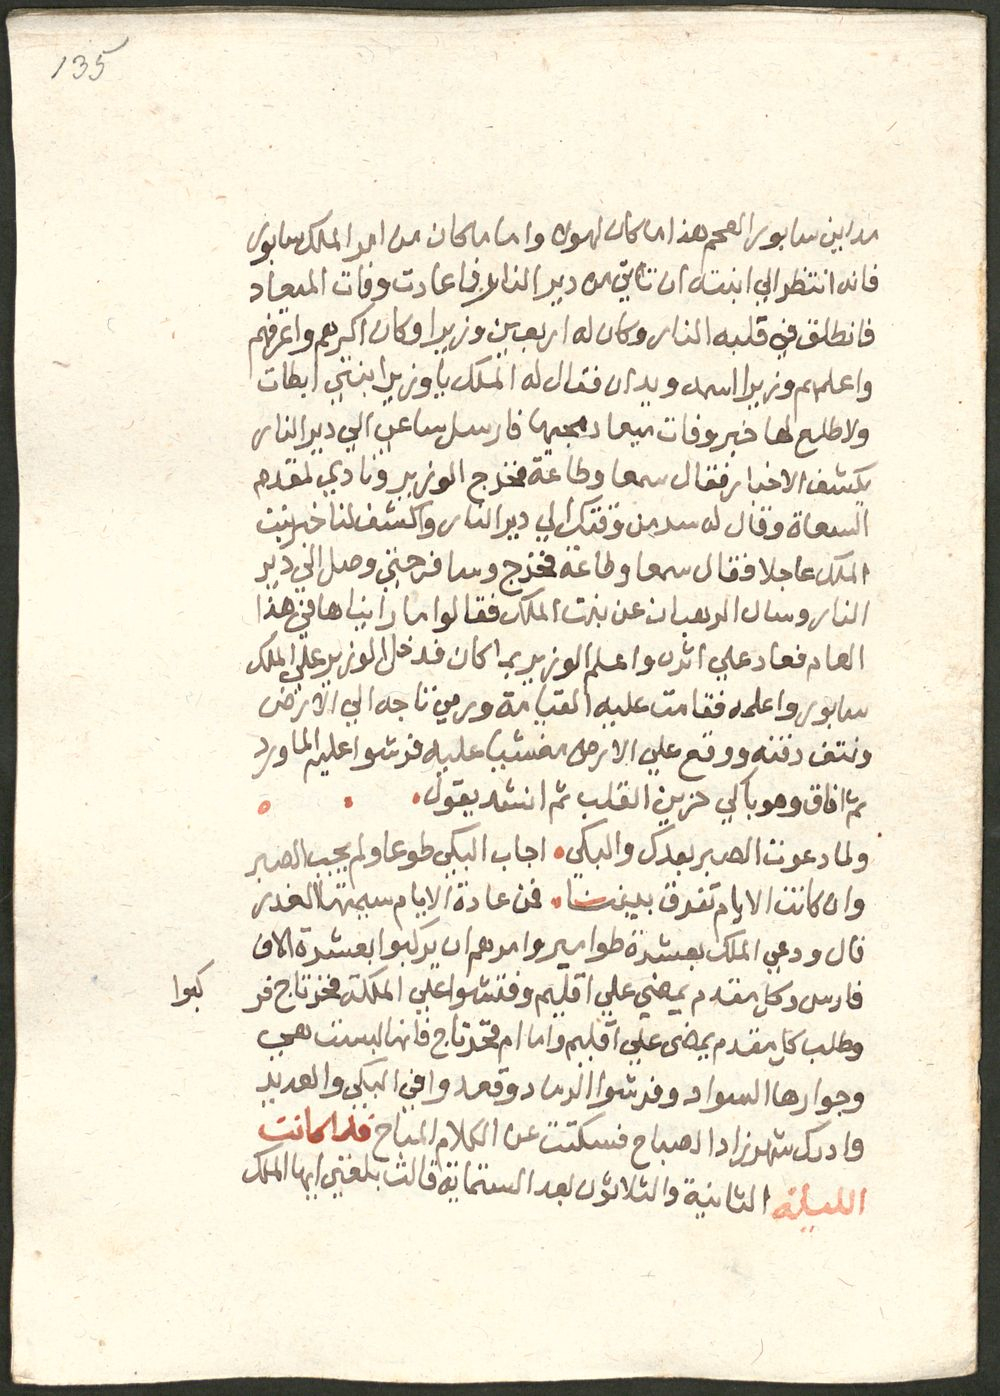 135
مداين سابور العجم هذا ما كان لهولا واما ما كان من امر الملك سابور
فانه انتظر الي ابنته ان تاتي من دير النار فما عادت وفات الميعاد
فانطلق في قلبه النار وكان له اربعين وزيرا وكان اكبرهم واعرفهم
واعلمهم وزيرا اسمه ويدان فقال له الملك يا وزير ابنتي ابطات
ولا طلع لها خبر وفات ميعاد مجيها فارسل ساعي الي دير النار
يكشف الاخبار فقال سمعا وطاعة فخرج الوزير ونادي لمقدم
السعاة وقال له سر من وقتك الي دير النار واكشف لنا خبر بنت
الملك عاجلا فقال سمعا وطاعة فخرج وسافر حتي وصل الي دير
النار وسال الرهبان عن بنت الملك فقالوا ما راينا ها في هذا
العام فعاد علي اثره واعلم الوزير بما كان فدخل الوزير علي الملك
سابور واعلمه فقامت عليه القيامة ورمي تاجه الي الارض
ونتف دقنه ووقع علي الارض مغشيا عليه فرشوا عليه الماورد
ثم افاق وهو باكي حزين القلب ثم انشد يقول
ولما دعوت الصبر بعدك والبكي اجاب البكي طوعا ولم يجب الصبر
وان كانت الايام تفرق بيننا فمن عادة الايام سيمتها الغدر
قال ودعي الملك بعشرة طوامير وامرهم ان يركبوا بعشرة الاف
فارس وكل مقدم يمضي علي اقليم وفتشوا علي الملكة فخر تاج فر
كبوا
وطلب كل مقدم يمضي علي اقليم واما ام فخر تاج فانها لبست هي
وجوارها السواد وفرشوا الرماد وقعدوا في البكي والعديد
وادرك شهرزاد الصباح فسكتت عن الكلام المباح فلما كانت
الليلة الثانية والثلاثون بعد الستماية قالت بلغني ايها الملك